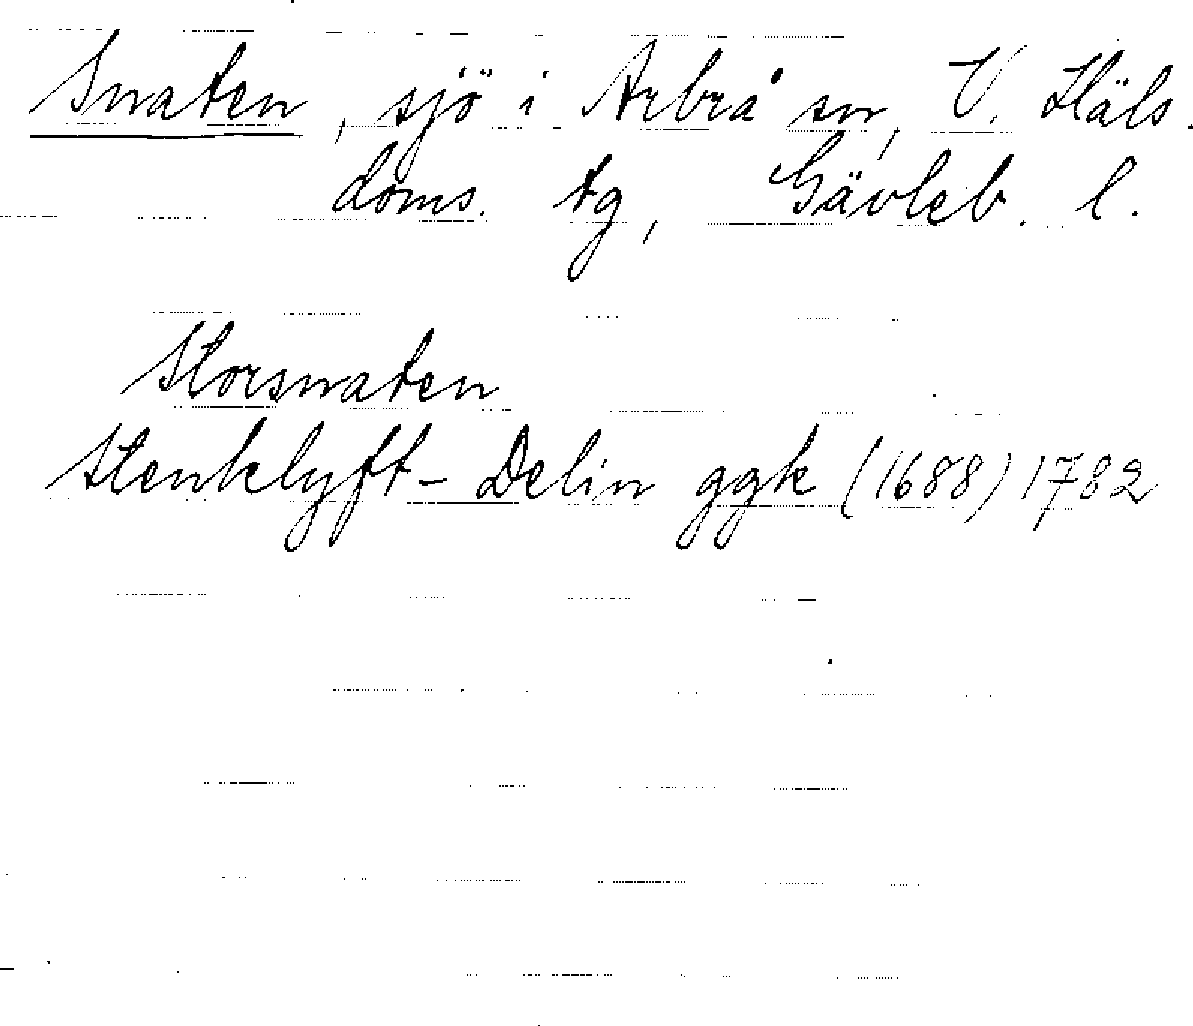 Snaten, sjö i Arbrå sn, V. Häls.
doms. tg, Gävleb. l.
Storsnaten
Stenklyft-Delin ggk (1688) 1782